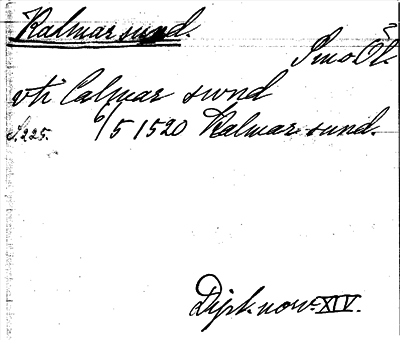 Kalmar sund.
Smo Öl.
vti Calmar swnd
S. 225. 6/5 1520 Kalmar sund.
Dipl. norv. XIV.